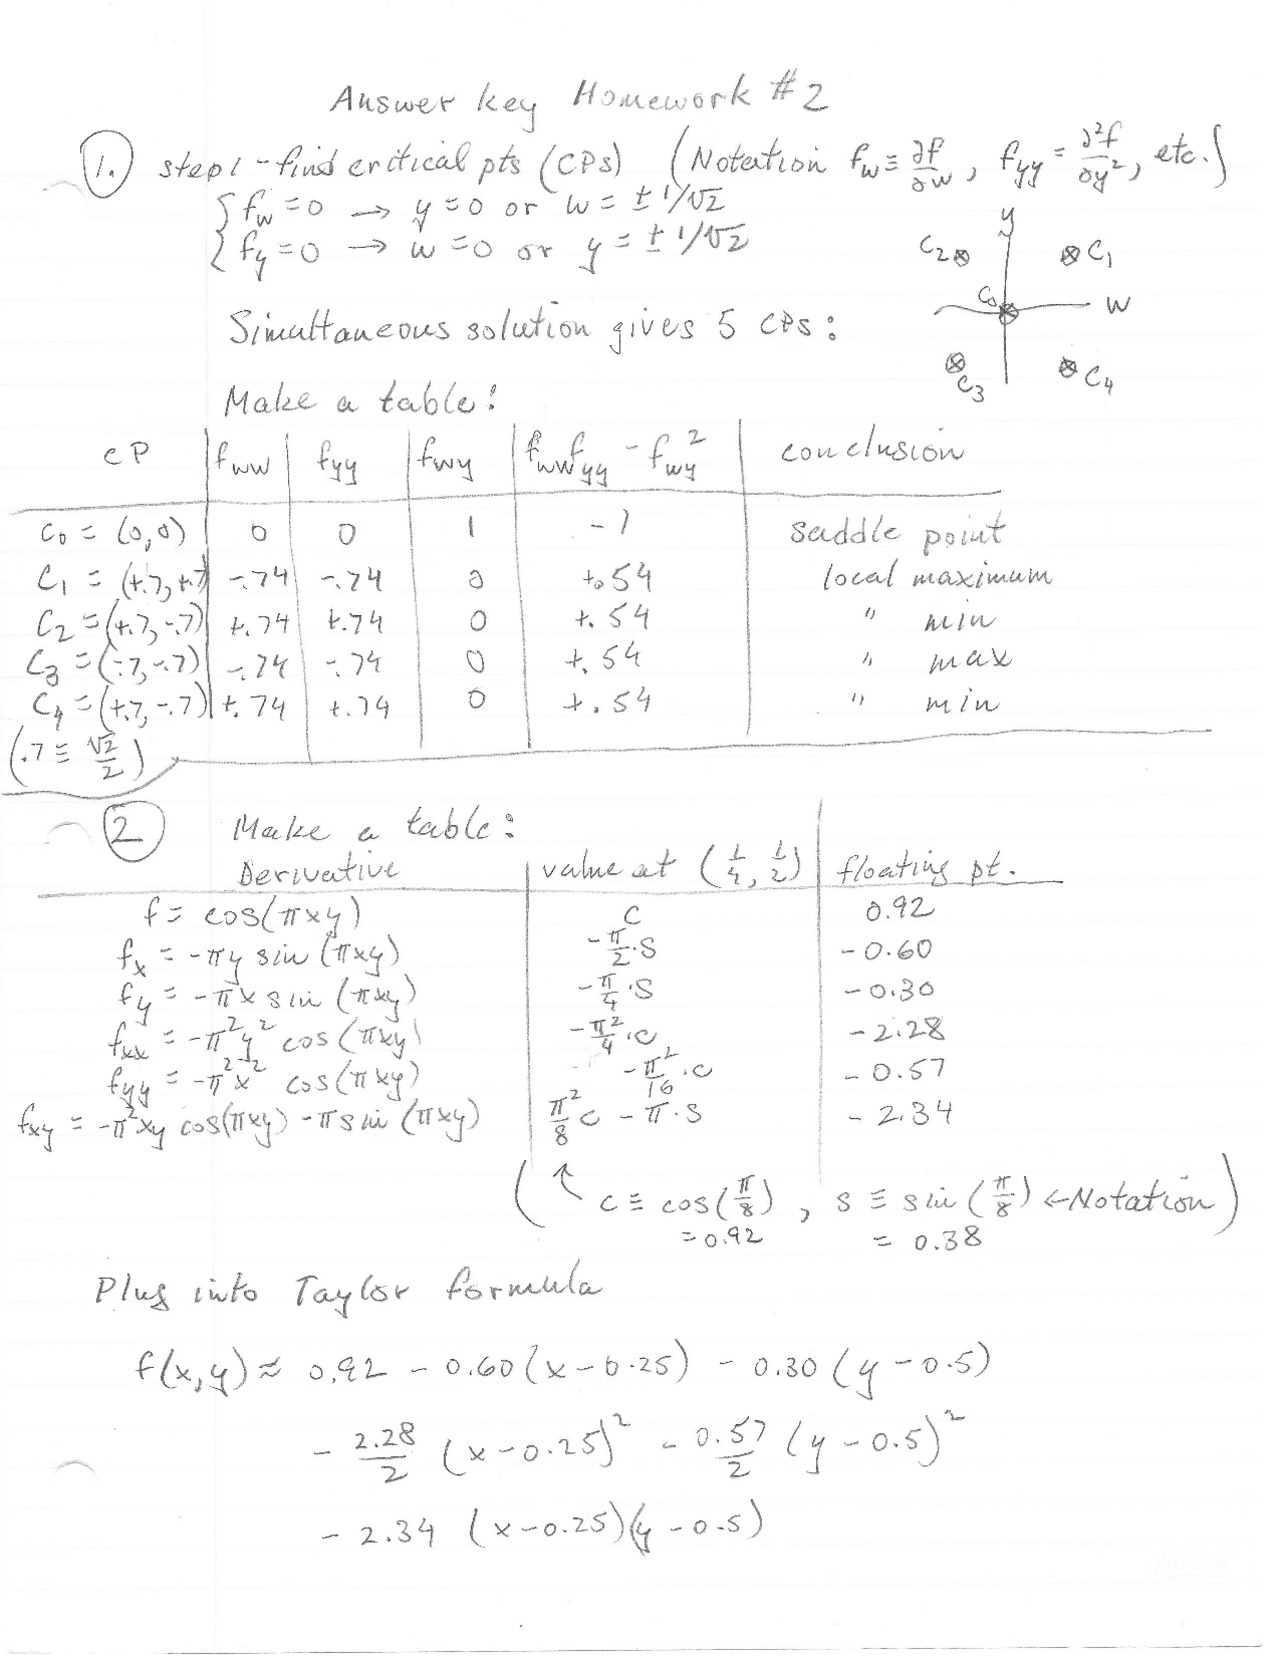 Answer key Homework #2
1. step1 - find critical pts (CPs) (Notation f_w ≡ ∂f/∂w, f_yy = ∂²f/∂y², etc.)
{ f_w = 0 → y = 0 or w = ± 1/√2
{ f_y = 0 → w = 0 or y = ± 1/√2
y
C2 ⊗ ⊗ C1
C0 W
⊗ C3 ⊗ C4
Simultaneous solution gives 5 CPs:
Make a table:
CP | f_ww | f_yy | f_wy | f_ww f_yy - f_wy² | conclusion
C0 = (0,0) | 0 | 0 | 1 | -1 | saddle point
C1 = (+.7, +.7) | -.74 | -.74 | 0 | +.54 | local maximum
C2 = (+.7, -.7) | +.74 | +.74 | 0 | +.54 | " min
C3 = (-.7, -.7) | -.74 | -.74 | 0 | +.54 | " max
C4 = (+.7, -.7) | +.74 | +.74 | 0 | +.54 | " min
(.7 ≡ √2/2)
2 Make a table:
Derivative | value at (1/4, 1/2) | floating pt.
f = cos(πxy) | C | 0.92
f_x = -πy sin(πxy) | -π/2·S | -0.60
f_y = -πx sin(πxy) | -π/4·S | -0.30
f_xx = -π²y² cos(πxy) | -π²/4·C | -2.28
f_yy = -π²x² cos(πxy) | -π²/16·C | -0.57
f_xy = -π²xy cos(πxy) - π sin(πxy) | π²/8 C - π·S | -2.34
(↑ C ≡ cos(π/8), S ≡ sin(π/8) ← Notation)
= 0.92 = 0.38
Plug into Taylor formula
f(x,y) ≈ 0.92 - 0.60(x-0.25) - 0.30(y-0.5)
- 2.28/2 (x-0.25)² - 0.57/2 (y-0.5)²
- 2.34 (x-0.25)(y-0.5)